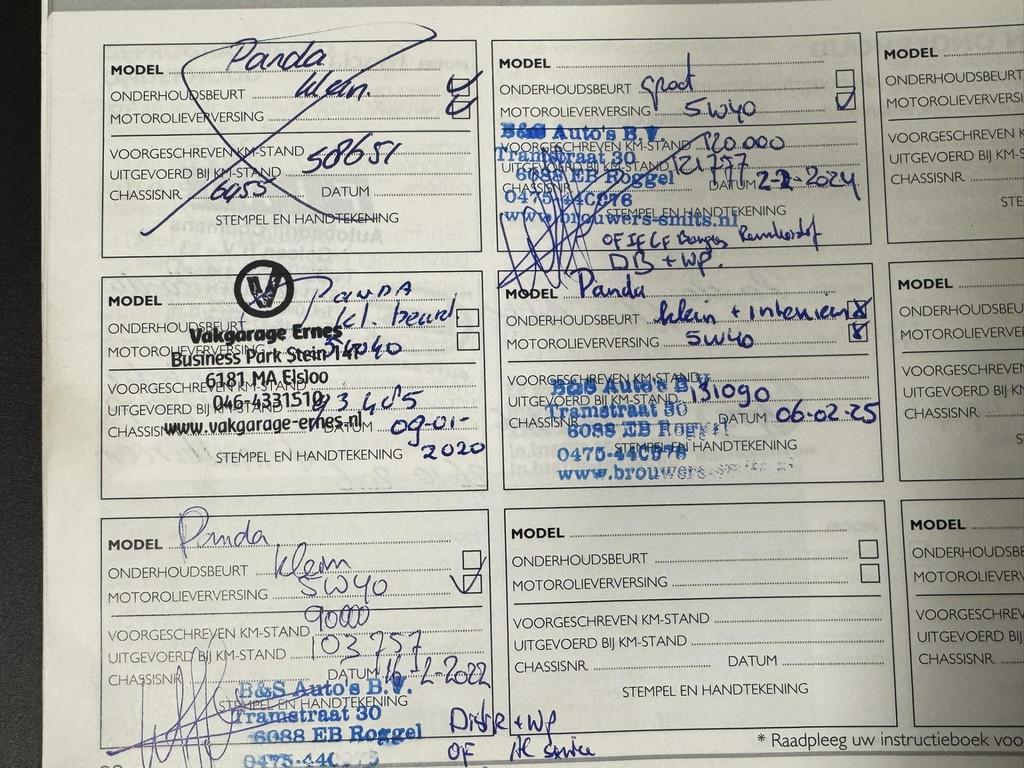 MODEL Panda
ONDERHOUDSBEURT klein.
MOTOROLIEVERVERSING
VOORGESCHREVEN KM-STAND
UITGEVOERD BIJ KM-STAND 58651
CHASSISNR. 6455 DATUM
STEMPEL EN HANDTEKENING
MODEL PANDA
ONDERHOUDSBEURT kl. beurt
Vakgarage Ernes
MOTOROLIEVERVERSING 5W40
Business Park Stein 141
6181 MA Elsloo
VOORGESCHREVEN KM-STAND
046-4331510
UITGEVOERD BIJ KM-STAND 93405
CHASSISNR. DATUM 09-01-2020
www.vakgarage-ernes.nl
STEMPEL EN HANDTEKENING
MODEL Panda
ONDERHOUDSBEURT klein
MOTOROLIEVERVERSING 5W40
VOORGESCHREVEN KM-STAND 90000
UITGEVOERD BIJ KM-STAND 103757
CHASSISNR. DATUM 16-2-2022
STEMPEL EN HANDTEKENING
B&S Auto's B.V.
Tramstraat 30
6088 EB Roggel
MODEL
ONDERHOUDSBEURT groot
MOTOROLIEVERVERSING 5W40
B&S Auto's B.V.
VOORGESCHREVEN KM-STAND 120.000
Tramstraat 30
UITGEVOERD BIJ KM-STAND 121777
6088 EB Roggel
CHASSISNR. DATUM 2-2-2024
0475-440976
STEMPEL EN HANDTEKENING
www.brouwers-smits.nl
OF IF LF Bougies
DB + WP.
MODEL Panda
ONDERHOUDSBEURT klein + interieur
MOTOROLIEVERVERSING 5W40
VOORGESCHREVEN KM-STAND
B&S Auto's B.V.
UITGEVOERD BIJ KM-STAND 131090
Tramstraat 30
CHASSISNR. DATUM 06-02-25
6088 EB Roggel
STEMPEL EN HANDTEKENING
0475-440976
www.brouwers-smits.nl
MODEL
ONDERHOUDSBEURT
MOTOROLIEVERVERSING
VOORGESCHREVEN KM-STAND
UITGEVOERD BIJ KM-STAND
CHASSISNR. DATUM
STEMPEL EN HANDTEKENING
Distr + WP
OF
MODEL
ONDERHOUDSBEURT
MOTOROLIEVERVERSI
VOORGESCHREVEN K
UITGEVOERD BIJ KM-
CHASSISNR.
STE
MODEL
ONDERHOUDSBEU
MOTOROLIEVERVE
VOORGESCHREVEN
UITGEVOERD BIJ KM
CHASSISNR.
STE
MODEL
ONDERHOUDSBE
MOTOROLIEVERV
VOORGESCHREV
UITGEVOERD BIJ K
CHASSISNR.
S
* Raadpleeg uw instructieboek voo